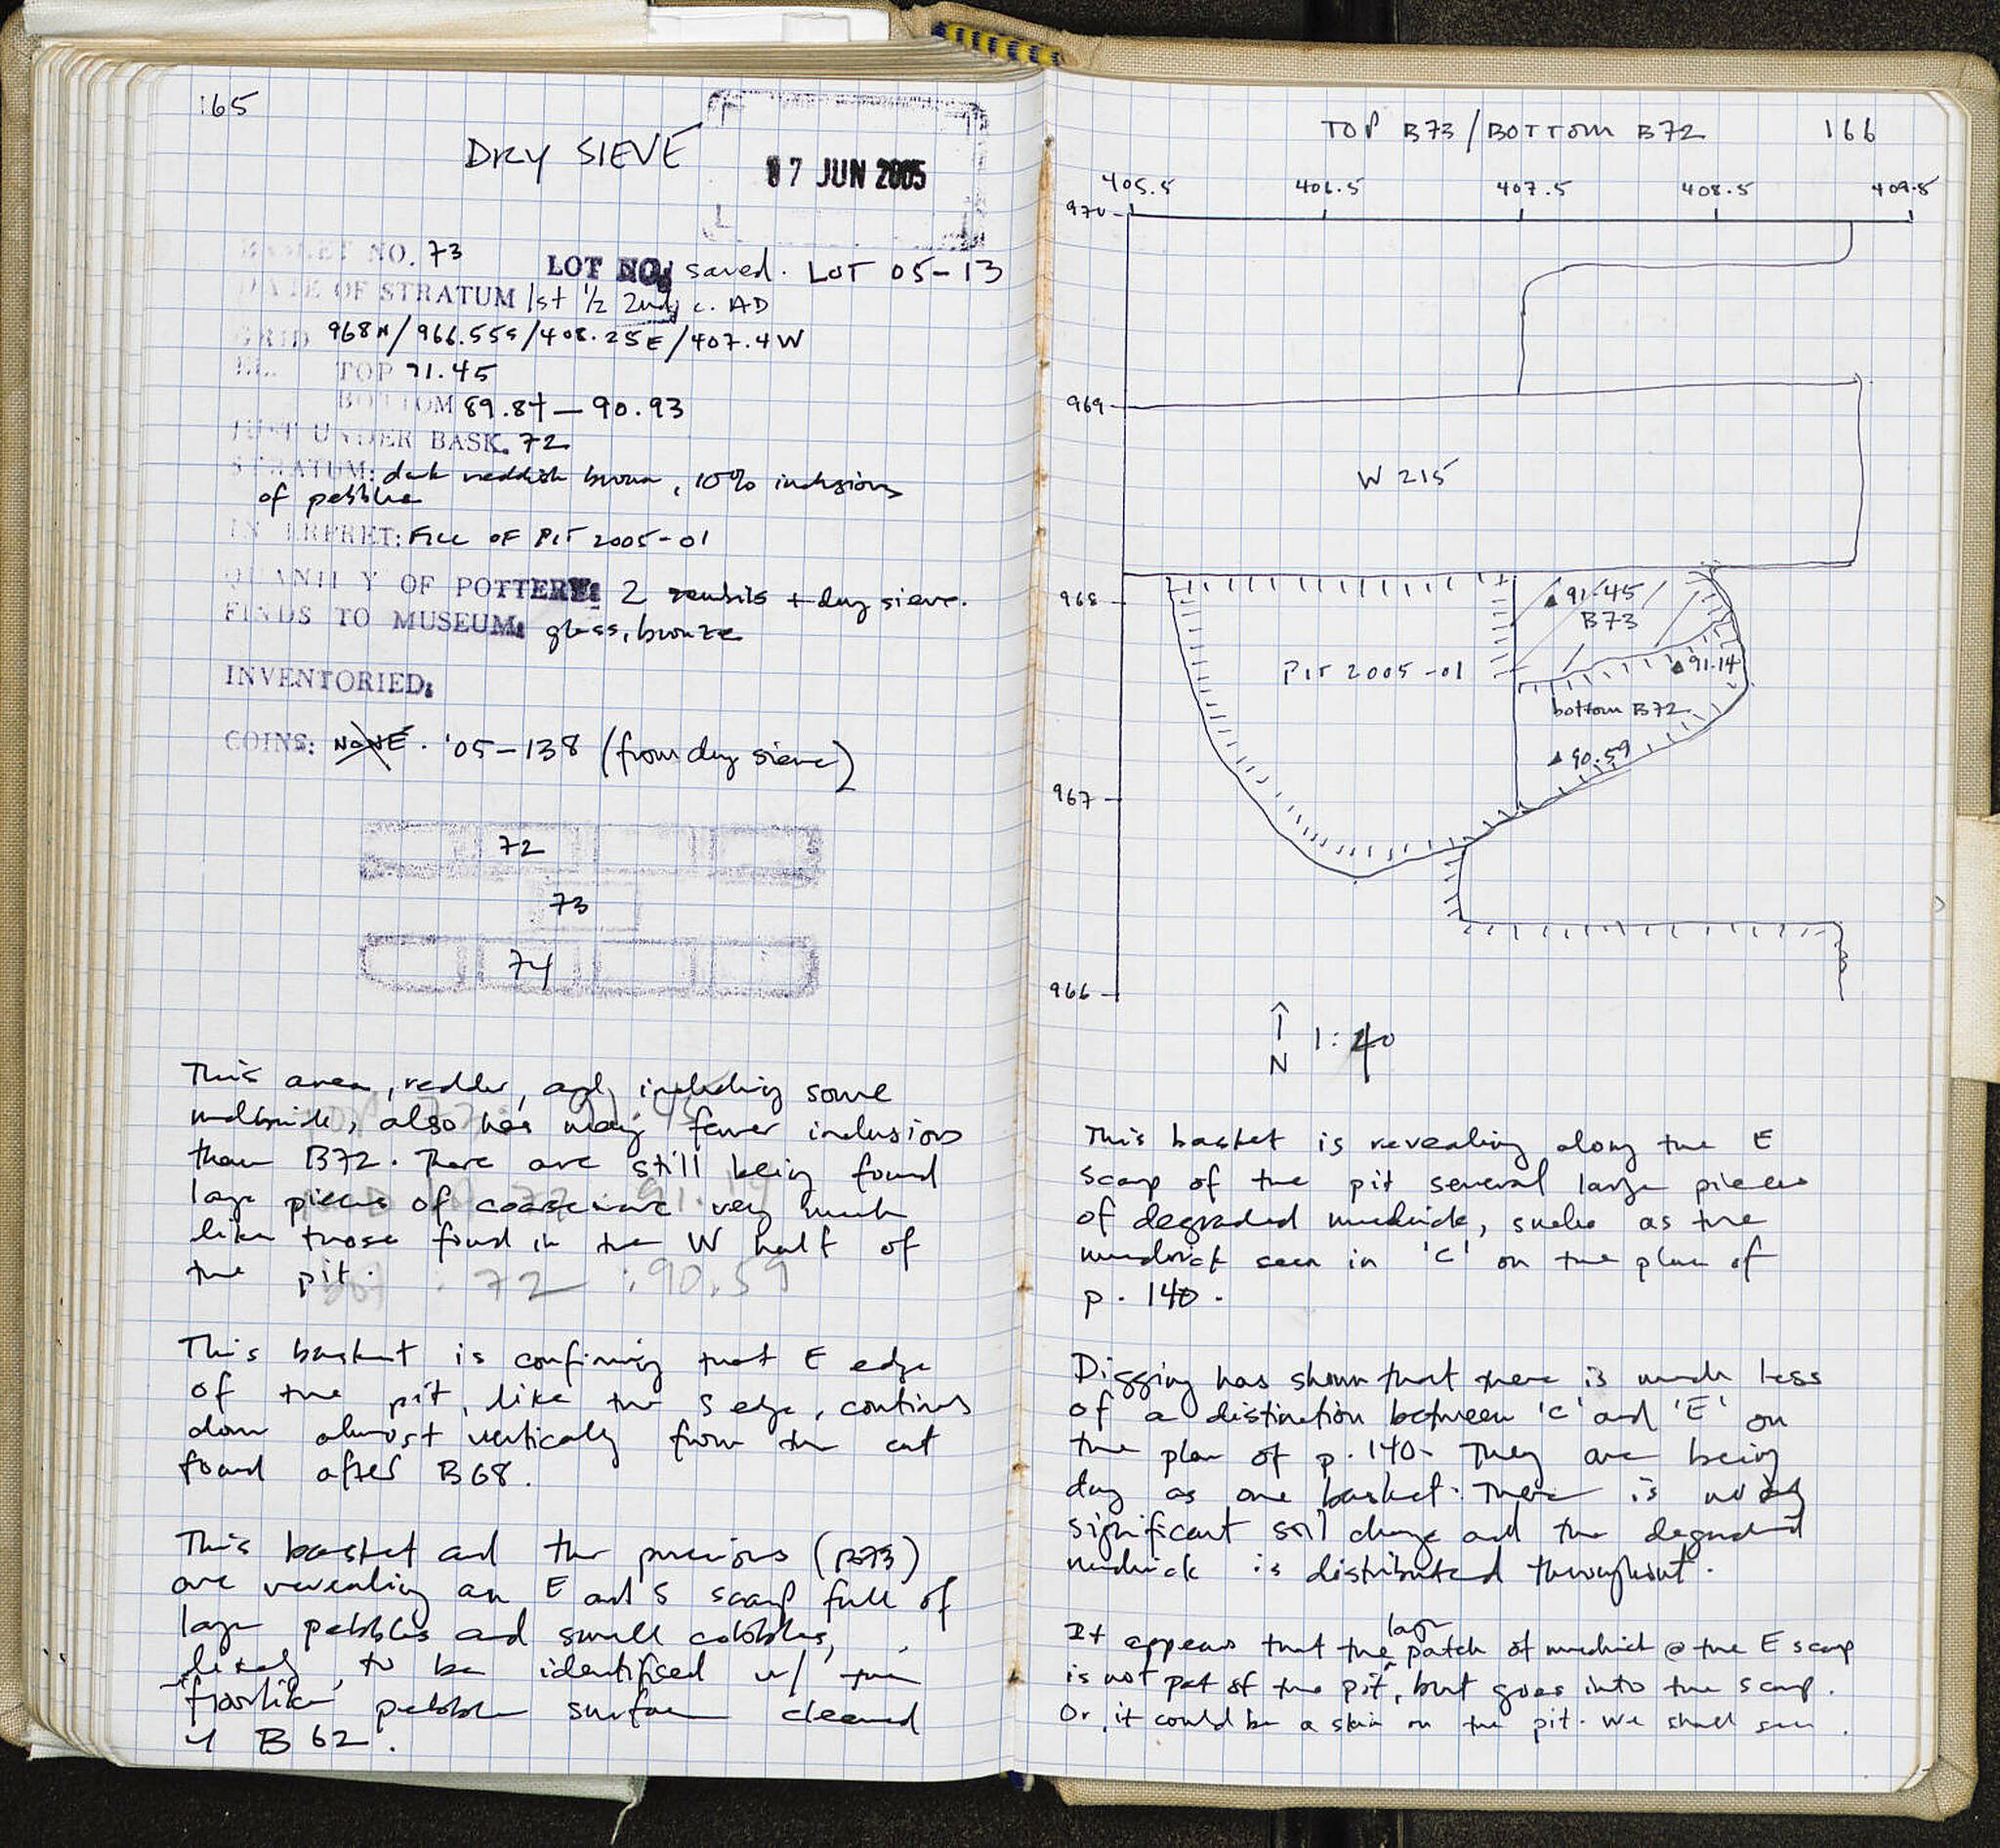 165
DRY SIEVE
07 JUN 2005
BASKET NO. 73
LOT NO. saved. LOT 05-13
DATE OF STRATUM 1st 1/2 2nd c. AD
GRID 968N/966.55S/408.25E/407.4W
EL. TOP 91.45
BOTTOM 89.84 – 90.93
JUST UNDER BASK. 72
STRATUM: dark reddish brown, 10% inclusions
of pebbles
INTERPRET: FILL OF PIT 2005-01
QUANTITY OF POTTERY: 2 zembils + dry sieve.
FINDS TO MUSEUM: glass, bronze
INVENTORIED:
COINS: NONE. '05-138 (from dry sieve)
72
73
74
This area, redder, and including some
mudbrick, also has many fewer inclusions
than B72. There are still being found
large pieces of coarseware very much
like those found in the W half of
the pit.
72 : 90.59
This basket is confirming that E edge
of the pit, like the S edge, continues
down almost vertically from the cut
found after B68.
This basket and the previous (B73)
are revealing an E and S scarp full of
large pebbles and small cobbles,
likely to be identified w/ the
"floorlike" pebble surface cleaned
B62.
TOP B73/BOTTOM B72 166
405.5 406.5 407.5 408.5 409.5
970
969
W 215
968
91.45
B73
PIT 2005-01
91.14
bottom B72
90.59
967
966
N 1:40
This basket is revealing along the E
scarp of the pit several large pieces
of degraded mudbrick, such as the
mudbrick seen in 'C' on the plan of
p. 140.
Digging has shown that there is much less
of a distinction between 'C' and 'E' on
the plan of p. 140. They are being
dug as one basket. There is no
significant soil change and the degraded
mudbrick is distributed throughout.
large
It appears that the patch of mudbrick @ the E scarp
is not part of the pit, but goes into the scarp.
Or, it could be a skin on the pit. We shall see.